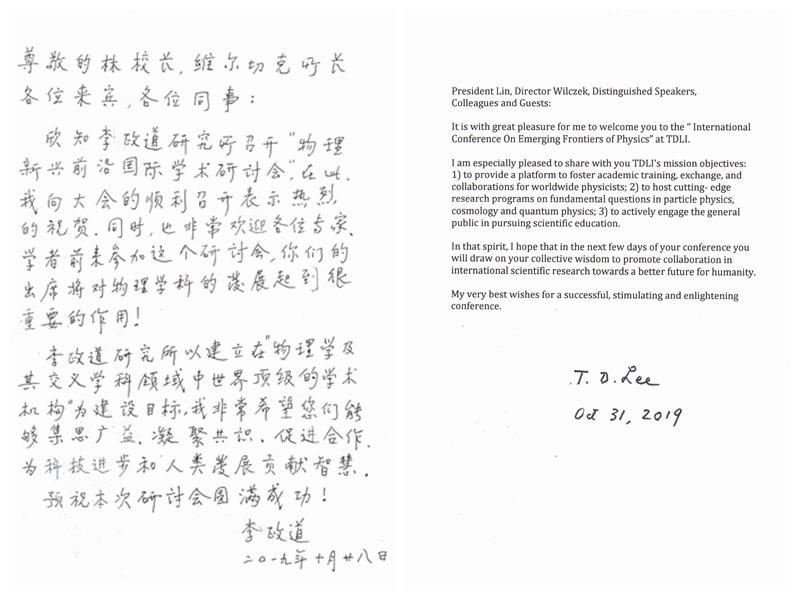 尊敬的林校长,维尔切克所长
各位来宾,各位同事:
欣知李政道研究所召开“物理
新兴前沿国际学术研讨会”,在此、
我向大会的顺利召开表示热烈
的祝贺.同时,也非常欢迎各位专家、
学者前来参加这个研讨会,你们的
出席将对物理学科的发展起到很
重要的作用!
李政道研究所以建立在“物理学及
其交义学科领域中世界顶级的学术
机构”为建设目标,我非常希望您们能
够集思广益、凝聚共识、促进合作、
为科技进步和人类发展贡献智慧.
预祝本次研讨会圆满成功!
李政道
二〇一九年十月廿八日
President Lin, Director Wilczek, Distinguished Speakers,
Colleagues and Guests:
It is with great pleasure for me to welcome you to the “ International
Conference On Emerging Frontiers of Physics” at TDLI.
I am especially pleased to share with you TDLI's mission objectives:
1) to provide a platform to foster academic training, exchange, and
collaborations for worldwide physicists; 2) to host cutting- edge
research programs on fundamental questions in particle physics,
cosmology and quantum physics; 3) to actively engage the general
public in pursuing scientific education.
In that spirit, I hope that in the next few days of your conference you
will draw on your collective wisdom to promote collaboration in
international scientific research towards a better future for humanity.
My very best wishes for a successful, stimulating and enlightening
conference.
T. D. Lee
Oct 31, 2019